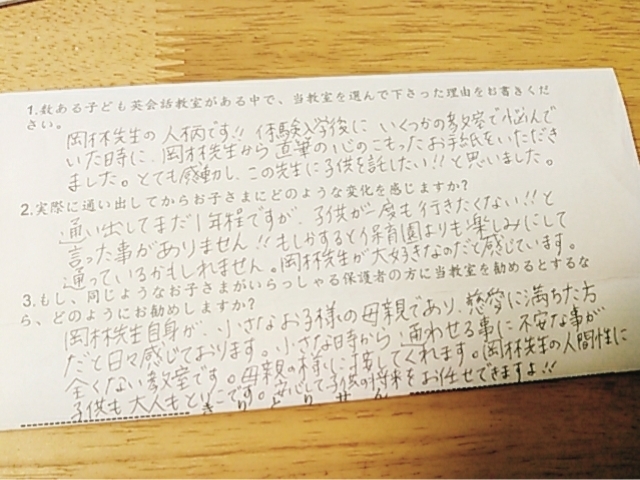 1.数ある子ども英会話教室がある中で、当教室を選んで下さった理由をお書きくだ
さい。
岡林先生の人柄です!! 体験入学後に いくつかの教室で悩んで
いた時に、岡林先生から 直筆の心のこもったお手紙をいただき
ました。とても感動し、この先生に子供を託したい!! と思いました。
2.実際に通い出してからお子さまにどのような変化を感じますか?
通い出してまだ1年程ですが、子供が一度も行きたくない!! と
言った事がありません!! もしかすると保育園よりも楽しみにして
通っているかもしれません。岡林先生が大好きなのだと感じています。
3.もし、同じようなお子さまがいらっしゃる保護者の方に当教室を勧めるとするな
ら、どのようにお勧めしますか?
岡林先生自身が、小さなお子様の母親であり、慈愛に満ちた方
だと日々感じております。小さな時から 通わせる事に不安な事が
全くない教室です。母親の様に接してくれます。岡林先生の人間性に
子供も大人も とりこです。安心して子供の将来をお任せできますよ!!
きりとりせん